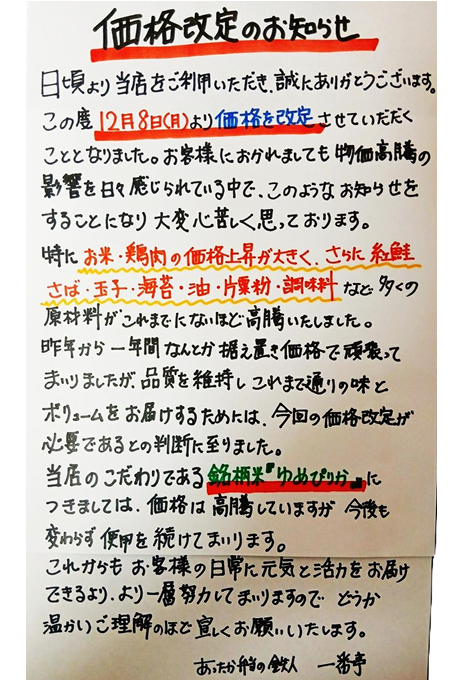 価格改定のお知らせ
日頃より当店をご利用いただき、誠にありがとうございます。
この度12月8日(月)より価格を改定させていただく
こととなりました。お客様におかれましても物価高騰の
影響を日々感じられている中で、このようなお知らせを
することになり大変心苦しく思っております。
特にお米・鶏肉の価格上昇が大きく、さらに紅鮭
さば・玉子・海苔・油・片栗粉・調味料など多くの
原材料がこれまでにないほど高騰いたしました。
昨年から一年間なんとか据え置き価格で頑張って
まいりましたが、品質を維持しこれまで通りの味と
ボリュームをお届けするためには、今回の価格改定が
必要であるとの判断に至りました。
当店のこだわりである銘柄米『ゆめぴりか』に
つきましては、価格は高騰していますが今後も
変わらず使用を続けてまいります。
これからもお客様の日常に元気と活力をお届け
できるよう、より一層努力してまいりますのでどうか
温かいご理解のほど宜しくお願いいたします。
あったか弁当の鉄人 一番亭